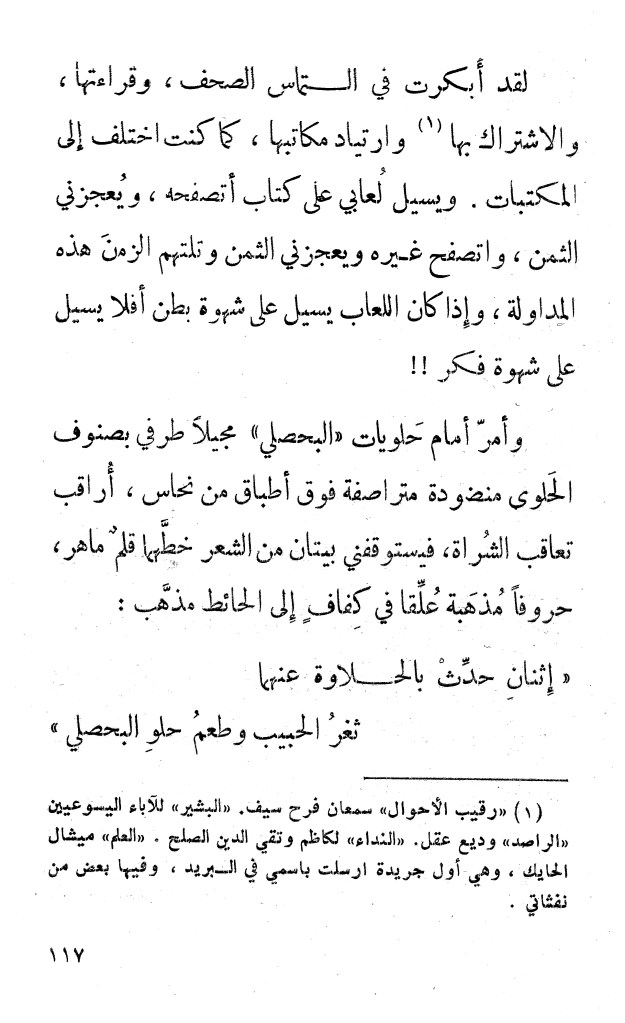 لقد أبكرت في التماس الصحف ، وقراءتها ،
والاشتراك بها (١) وارتياد مكاتبها ، كما كنت اختلف إلى
المكتبات . ويسيل لُعابي على كتاب أتصفحه ، ويُعجزني
الثمن ، واتصفح غيره ويعجزني الثمن وتلتهم الزمنَ هذه
المداولة ، وإذا كان اللعاب يسيل على شهوة بطن أفلا يسيل
على شهوة فكر !!
وأمرّ أمام حَلويات «البحصلي» مجيلاً طرفي بصنوف
الحَلوى منضودة متراصفة فوق أطباق من نحاس ، أُراقب
تعاقب الشُراة، فيستوقفني بيتان من الشعر خطَّها قلمٌ ماهر،
حروفاً مُذهَبة عُلِّقا في كِفافٍ إلى الحائط مذهَّب :
« إثنانِ حدِّثْ بالحلاوة عنهما
ثغرُ الحبيب وطعمُ حلوِ البحصلي »
(١) «رقيب الأحوال» سمعان فرح سيف. «البشير» للآباء اليسوعيين
«الراصد» وديع عقل. «النداء» لكاظم وتقي الدين الصلح . «العلم» ميشال
الحايك ، وهي أول جريدة ارسلت باسمي في البريد ، وفيها بعض من
نفثاتي .
١١٧